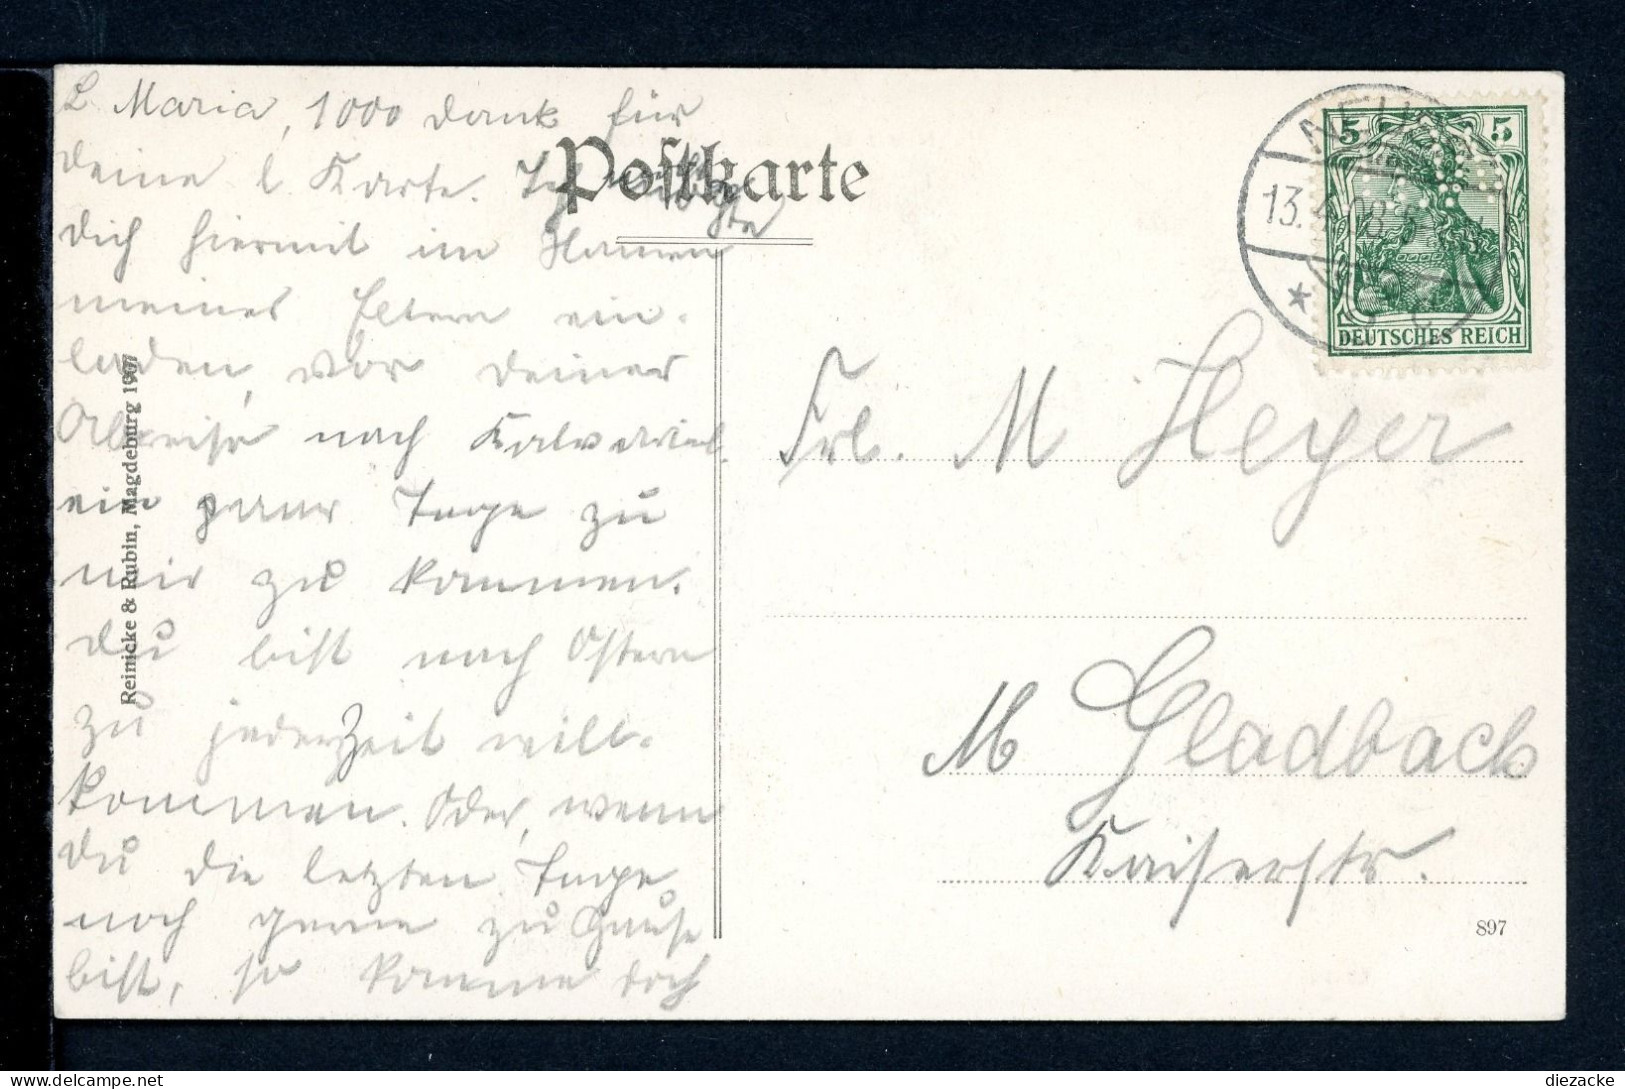 L Maria, 1000 Dank für
deine l. Karte. Ich möchte
dich hiermit im Namen
meines Eltern ein-
laden, vor deiner
Abreise nach
ein paar Tage zu
mir zu kommen.
Du bist nach Ostern
zu jederzeit will-
kommen. Oder, wenn
du die letzten Tage
noch gerne zu Hause
bist, so komme doch
Postkarte
Reinicke & Rubin, Magdeburg 1907
5 5
DEUTSCHES REICH
13.4.08.
Frl. M Heyer
M Gladbach
Kaiserstr.
897
delcampe.net
diezacke